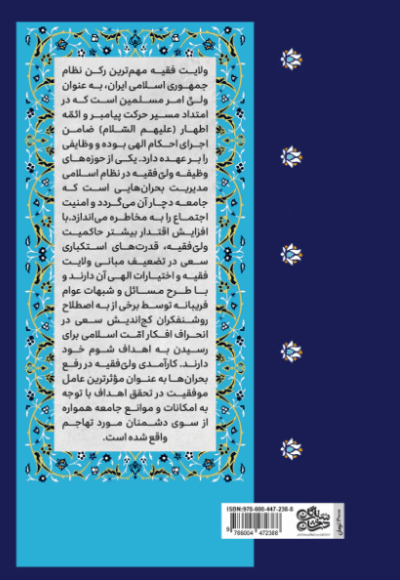 ولایت فقیه مهم‌ترین رکن نظام
جمهوری اسلامی ایران، به عنوان
ولیّ امر مسلمین است که در
امتداد مسیر حرکت پیامبر و ائمّه
اطهار (علیهم السّلام) ضامن
اجرای احکام الهی بوده و وظایفی
را بر عهده دارد. یکی از حوزه‌های
وظیفه ولیّ‌فقیه در نظام اسلامی
مدیریت بحران‌هایی است که
جامعه دچار آن می‌گردد و امنیت
اجتماع را به مخاطره می‌اندازد.با
افزایش اقتدار بیشتر حاکمیت
ولیّ‌فقیه، قدرت‌های استکباری
سعی در تضعیف مبانی ولایت
فقیه و اختیارات الهی آن دارند و
با طرح مسائل و شبهات عوام
فریبانه توسط برخی از به اصطلاح
روشنفکران کج‌اندیش سعی در
انحراف افکار امّت اسلامی برای
رسیدن به اهداف شوم خود
دارند. کارآمدی ولیّ‌فقیه در رفع
بحران‌ها به عنوان مؤثرترین عامل
موفقیت در تحقق اهداف با توجه
به امکانات و موانع جامعه همواره
از سوی دشمنان مورد تهاجم
واقع شده است.
ISBN:978-600-447-238-8
9 786004 472388